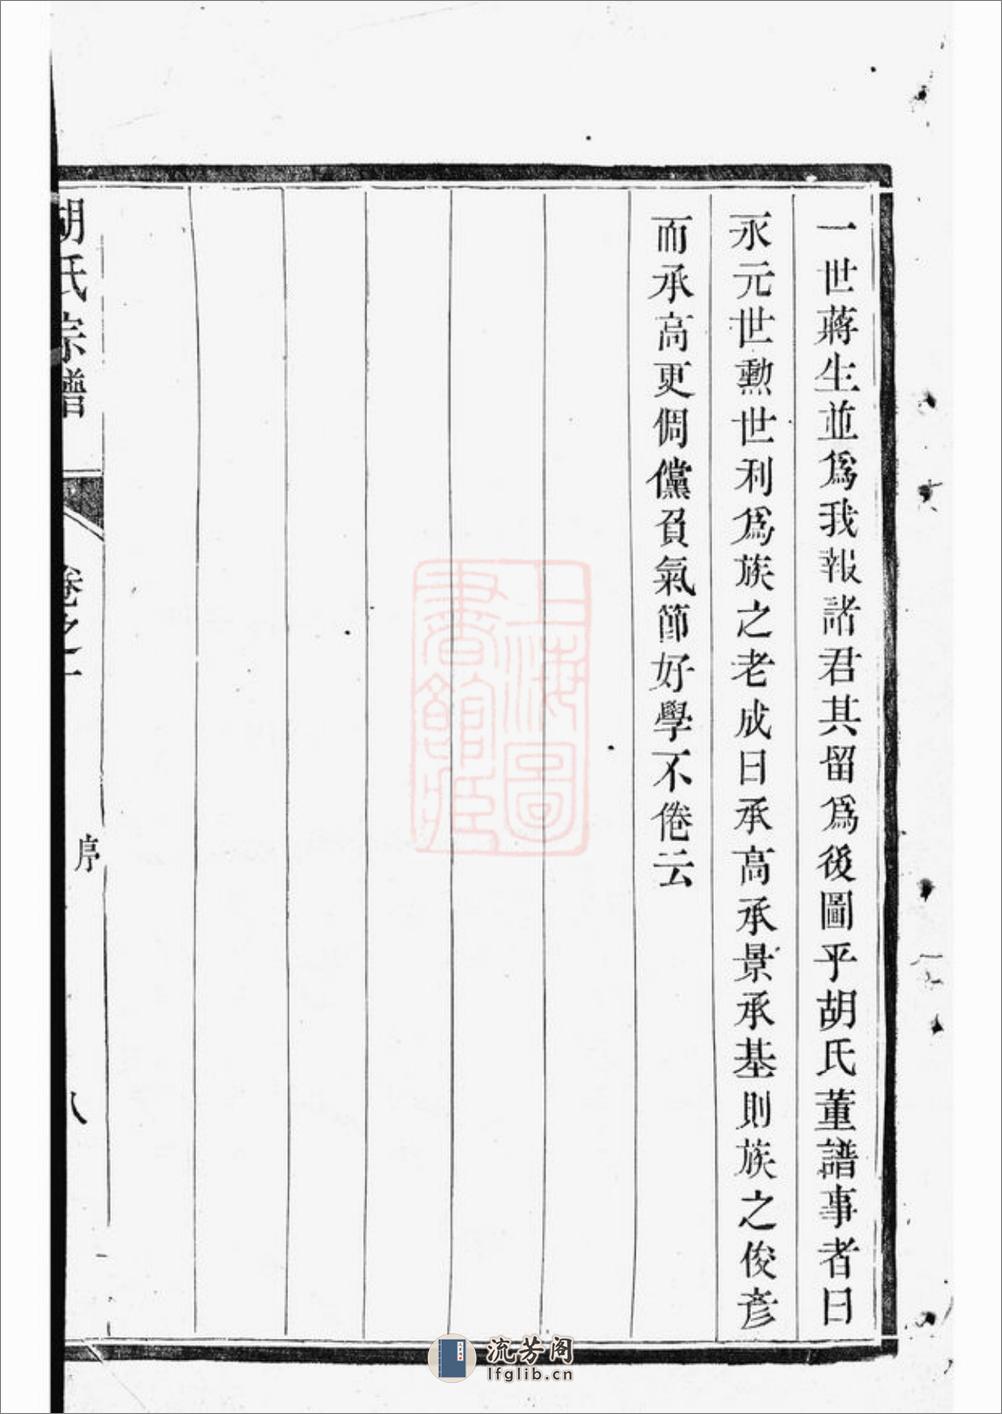 一世蔣生並爲我報諸君其留爲後圖乎胡氏董譜事者曰
永元世勲世利爲族之老成曰承高承景承基則族之俊彦
而承高更倜儻負氣節好學不倦云
胡氏宗譜
卷之一
序
八
上海圖
書館藏
流芳阁
lfglib.cn